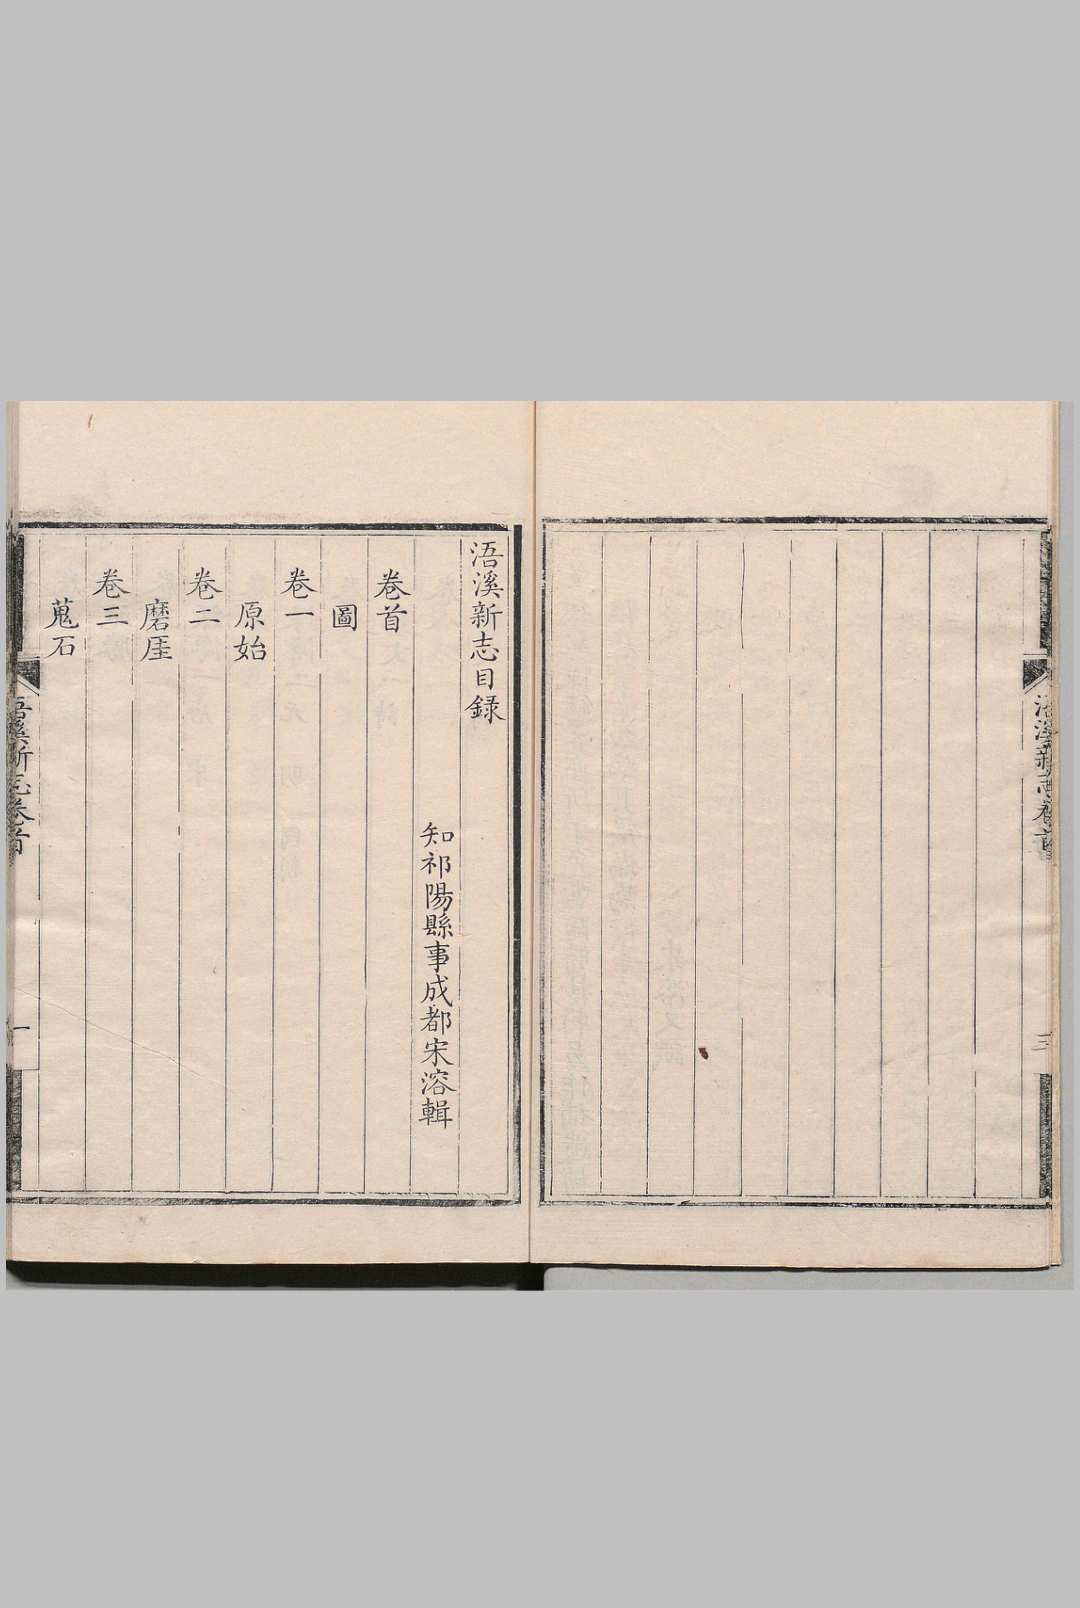 浯溪新志卷首
三
浯溪新志目録
知祁陽縣事成都宋溶輯
卷首
圖
卷一
原始
卷二
磨厓
卷三
蒐石
浯溪新志卷首
一